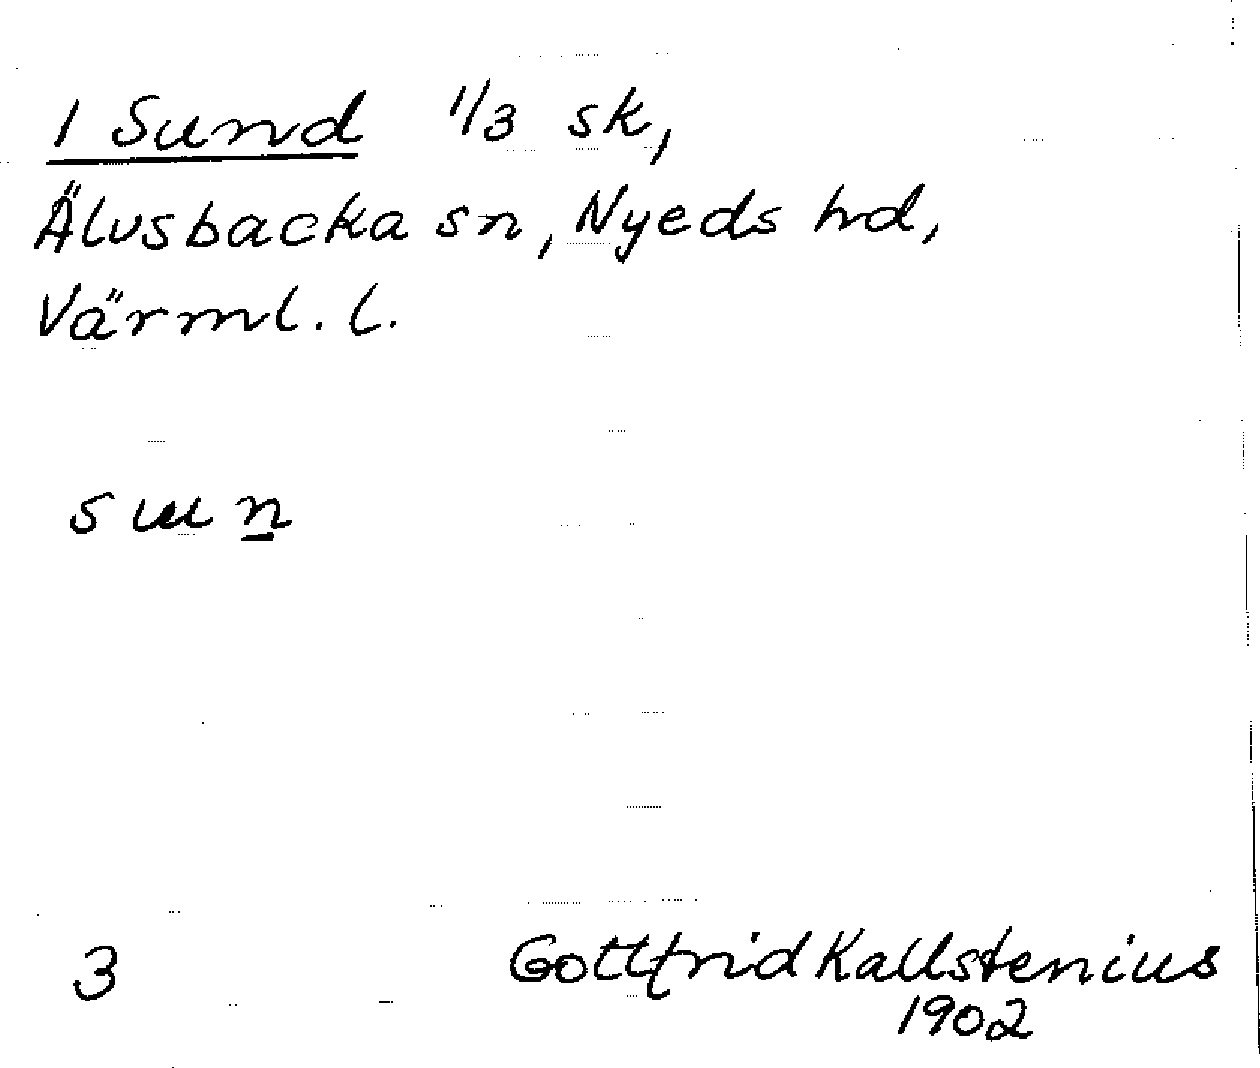 1 Sund 1/3 sk,
Älvsbacka sn, Nyeds hd,
Värml. l.
sɯn
3
Gottfrid Kallstenius
1902